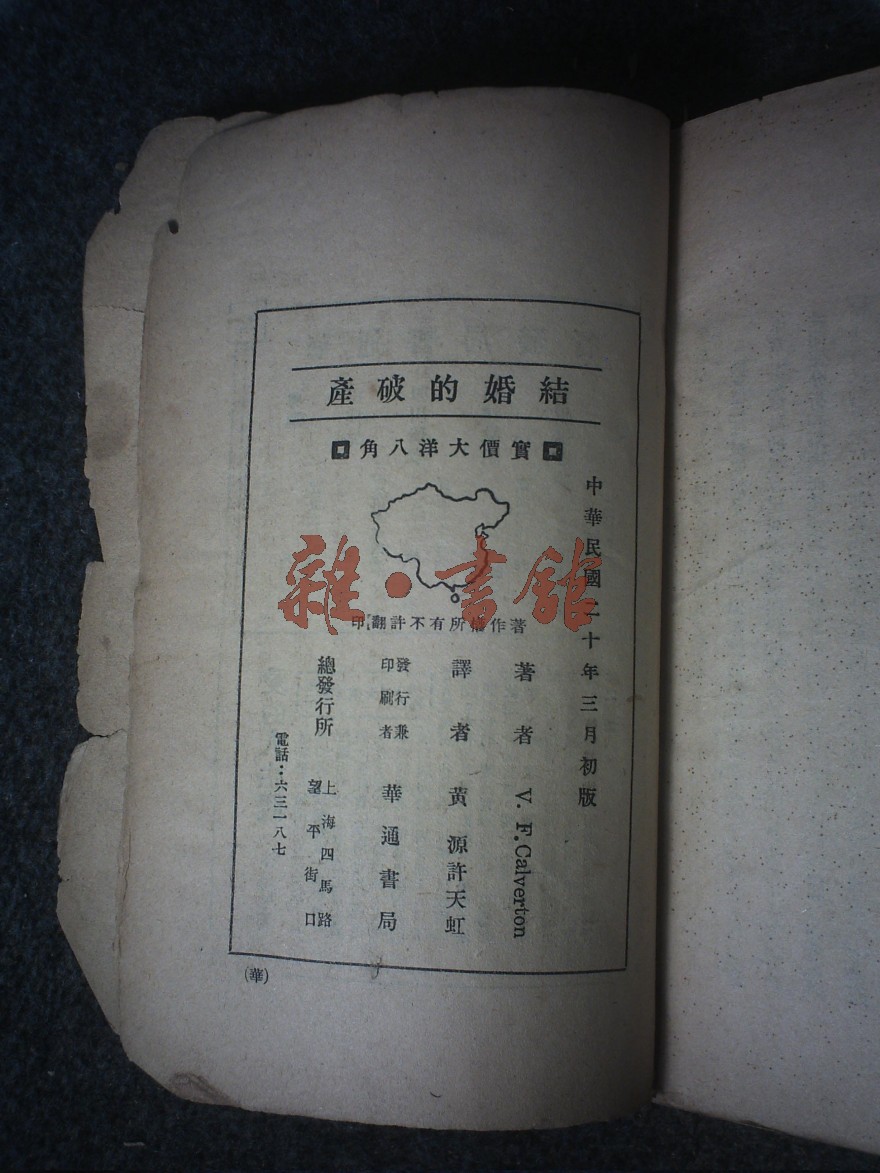 結婚的破產
實價大洋八角
中華民國二十年三月初版
著作權所有不許翻印
著者 V. F. Calverton
譯者 黃源許天虹
發行兼印刷者 華通書局
總發行所 上海四馬路望平街口
電話：六三一八七
（華）
雜·書館